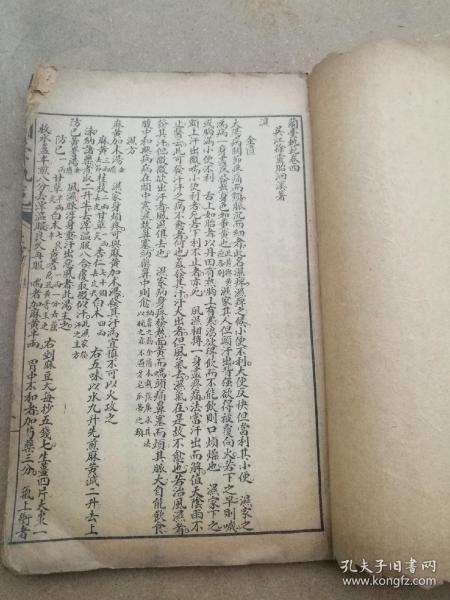 蘭臺軌範卷四
吳江徐靈胎洄溪著
濕
金匱
太陽病關節疼痛而煩脈沉而細者此名濕痺濕痺之候小便不利大便反快但當利其小便 濕家之
為病一身盡疼發熱身色如熏黃也 濕家其人但頭汗出背強欲得被覆向火若下之早則噦
或胸滿小便不利舌上如胎者以丹田有熱胸上有寒渴欲得飲而不能飲則口燥煩也 濕家下之
額上汗出微喘小便利者死若下利不止者亦死 風濕相搏一身盡疼痛法當汗出而解值天陰雨不
止醫云此可發汗汗之病不愈者何也蓋發其汗汗大出者但風氣去濕氣在是故不愈也若治風濕者
發其汗但微微似欲汗出者風濕俱去也 濕家病身疼發熱面黃而喘頭痛鼻塞而煩其脈大自能飲食
腹中和無病病在頭中寒濕故鼻塞納藥鼻中則愈
濕方
麻黃加朮湯 濕家身煩疼可與麻黃加朮湯發其汗為宜慎不可以火攻之
麻黃 桂枝二兩 甘草一兩 杏仁七十個 白朮四兩 右五味以水九升先煮麻黃減二升去上
沫納諸藥煮取二升半去滓溫服八合覆取微似汗
防己黃芪湯 風濕脈浮身重汗出惡風者此湯主之
防己一兩 甘草半兩 白朮 黃芪 右剉麻豆大每抄五錢匕生薑四片大棗一
枚水盞半煎八分去滓溫服良久再服 喘者加麻黃半兩 胃中不和者加芍藥三分 氣上衝者
孔夫子旧书网